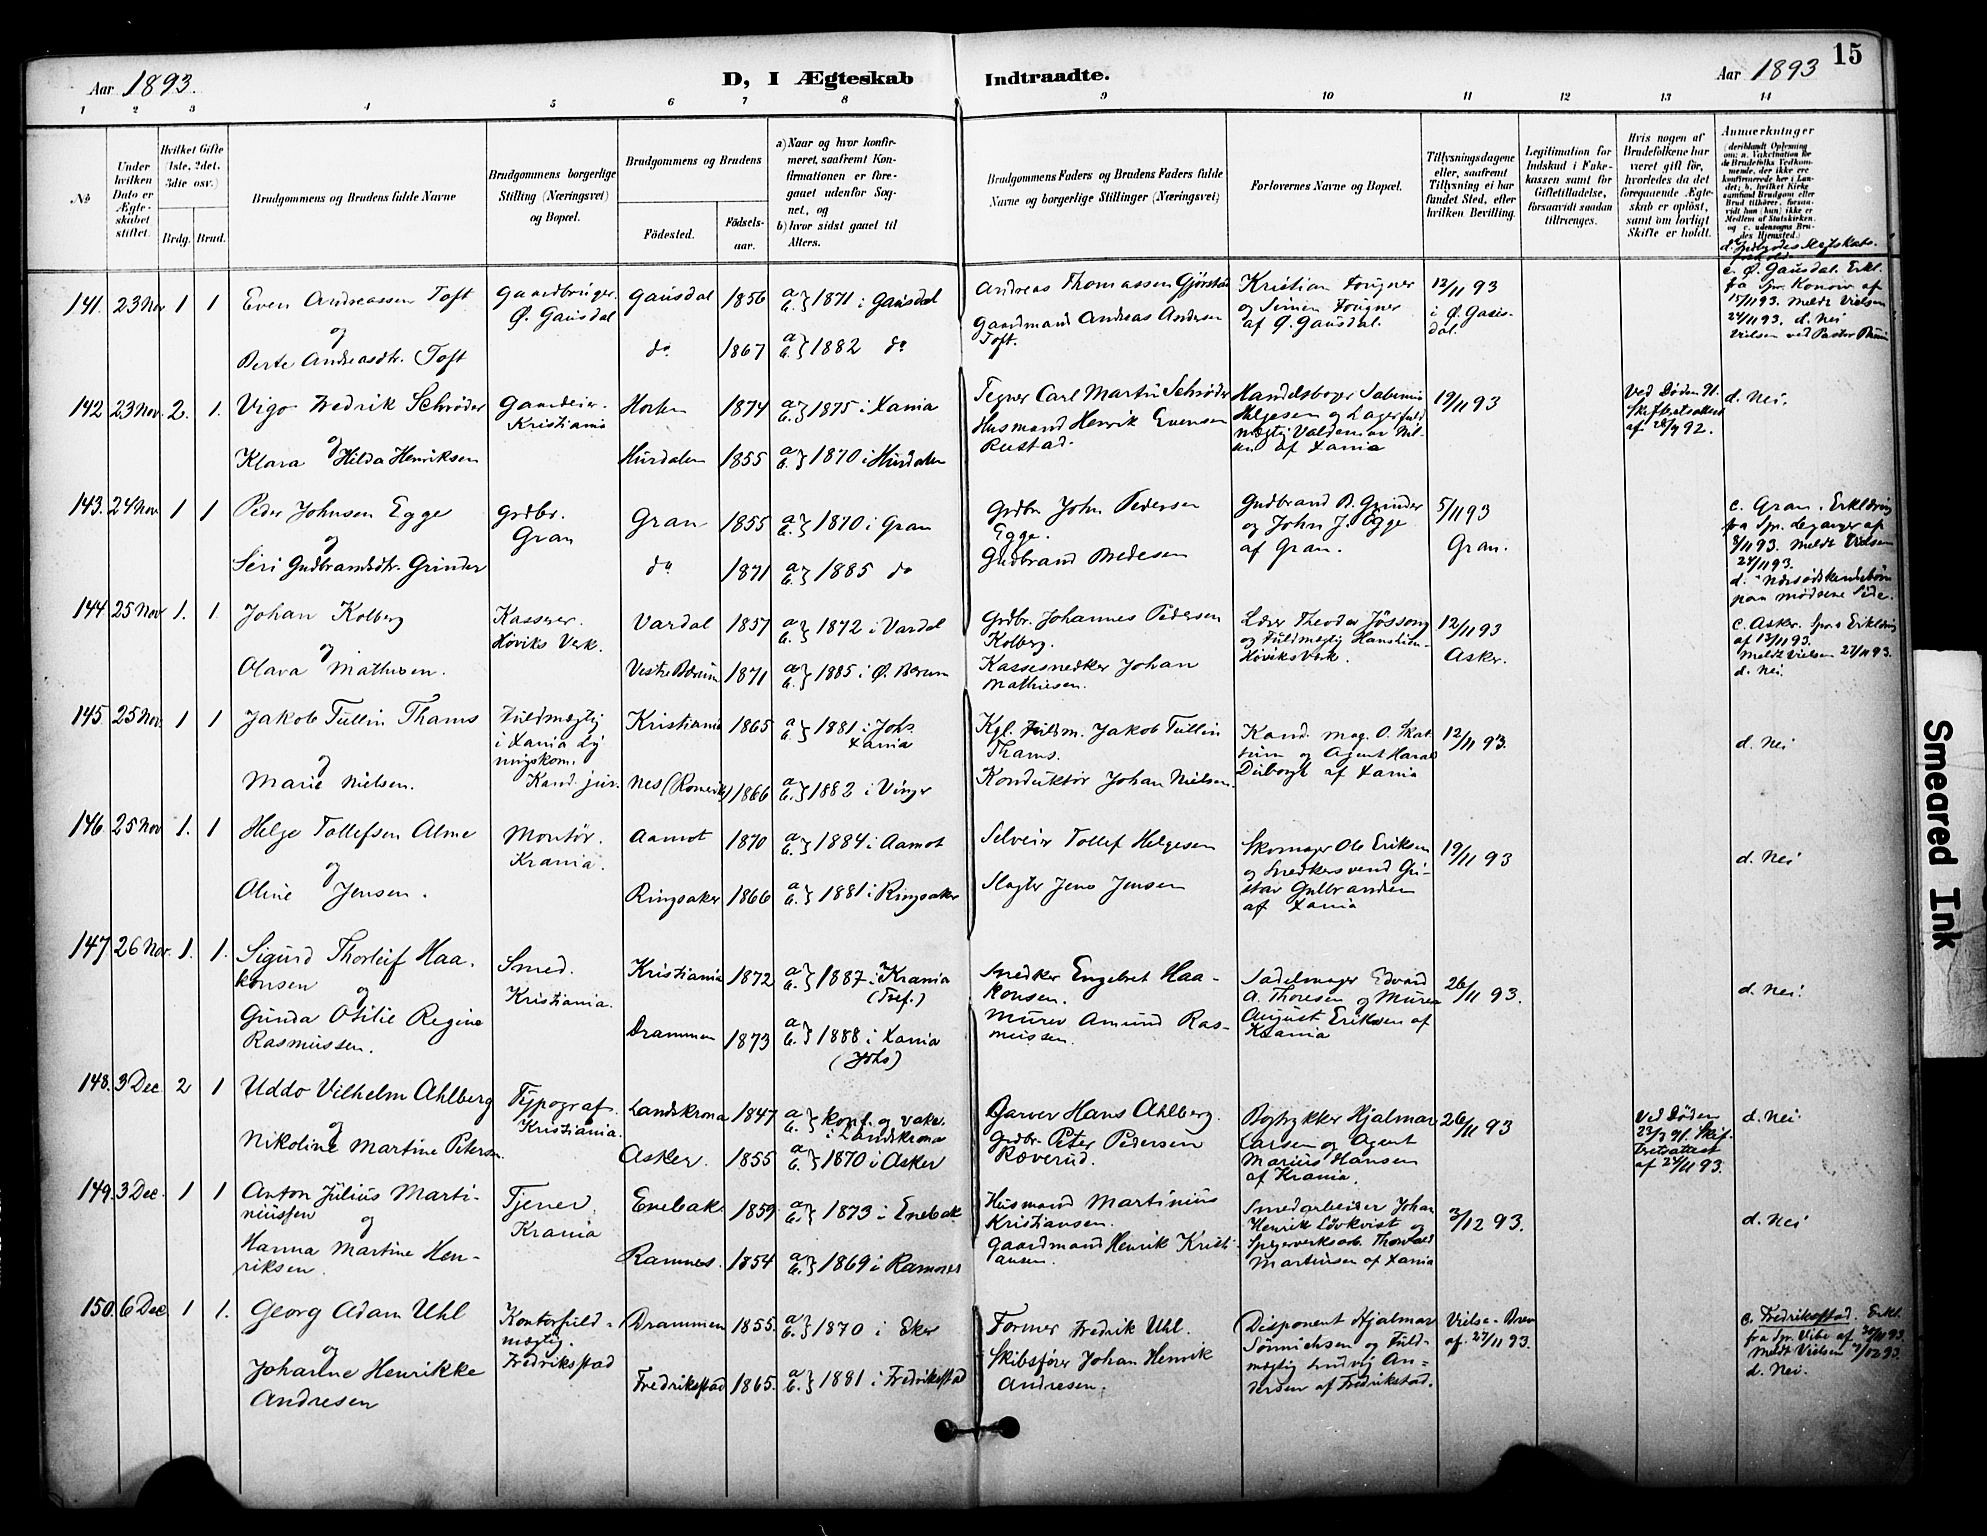 15
Aar 1893.
D, I Ægteskab Indtraadte.
Aar 1893
1 2 3 4 5 6 7 8 9 10 11 12 13 14
No
Under hvilken Dato er Ægteskabet stiftet.
Hvilket Gifte (1ste, 2det, 3die osv.)
Brdg. Brud.
Brudgommens og Brudens fulde Navne
Brudgommens borgerlige Stilling (Næringsvei) og Bopæl.
Brudgommens og Brudens
Fødested.
Fødselsaar.
a) Naar og hvor konfirmeret, saafremt Konfirmationen er foregaaet udenfor Sognet, og
b) hvor sidst gaaet til Alters.
Brudgommens Faders og Brudens Faders fulde Navne og borgerlige Stillinger (Næringsvei)
Forlovernes Navne og Bopæl.
Tillysningsdagene eller, saafremt Tillysning ei har fundet Sted, efter hvilken Bevilling.
Legitimation for Indskud i Enkekassen samt for Giftetilladelse, forsaavidt saadan tiltrænges.
Hvis nogen af Brudefolkene har været gift før, hvorledes da det foregaaende Ægteskab er opløst, samt om lovligt Skifte er holdt.
Anmærkninger
(deriblandt Oplysning om: a. Vakcination for de Brudefolks Vedkommende, der ikke ere konfirmerede her i Landet; b. hvilket Kirkesamfund Brudgom eller Brud tilhører, forsaavidt han (hun) ikke er Medlem af Statskirken, og c. udensogns Brudes Hjemsted.)
141. 23 Nov 1 1 Even Andreassen Toft
og
Berte Andreasdtr. Toft
Gaardbruger. Ø. Gausdal
Gausdal 1856 a b } 1871 i Gausdal
do 1867 a b } 1882 do
Andreas Thomassen
Gaardmand Andreas Andersen Toft.
Kristian Fougner og Simen Fougner af Ø. Gausdal.
12/11 93 i Ø. Gausdal.
c. Ø. Gausdal. Erkl. fra Spr. Konow af 15/11 93. Meldt Vielsen 24/11 93. d. Nei
Vielsen ved Pastor
142 23 Nov. 2. 1. Vigo Fredrik Schrøder
og
Klara Hilda Henriksen
Gaardeier. Kristiania
Horten 1874 a b } 1875 i Xania
Hurdalen 1855 a b } 1870 i Hurdalen
Tegner Carl Martin Schrøder
Husmand Henrik Evensen Rustad.
Helgesen og Lagerfuldmægtig Valdemar af Xania
19/11 93
Ved Døden 91. Skifteretsattest af 28/9 92.
d. Nei.
143. 24 Nov 1 1 Peder Johnsen Egge
og
Siri Gudbrandsdtr. Grinder
Grdbr. Gran
Gran 1855 a b } 1870 i Gran
do 1871 a b } 1885 do
Grdbr. John Pedersen Egge.
Gudbrand
Gudbrand B. Grinder og John J. Egge af Gran.
5/11 93 Gran.
c. Gran. Erklæring fra Spr. Leganger af 8/11 93. Meldt Vielsen 24/11 93.
d. Næssødskendebørn paa Mødrene Side.
144 25 Nov 1. 1. Johan Kolberg
og
Olava Mathisen.
Kasserer. Høviks Verk.
Vardal 1857 a b } 1872 i Vardal
Vestre Bærum 1871 a b } 1885 i Ø. Bærum
Grdbr. Johannes Pedersen Kolberg.
Kassesnedker Johan Mathiesen.
Lærer Theodor Jössong og Fuldmægtig Høviksverk.
12/11 93 Asker.
c. Asker. Spr.s Erklæring af 13/11 93.
Meldt Vielsen 27/11 93.
d. Nei.
145. 25 Nov. 1 1 Jakob Tullin Thams
og
Marie Nielsen.
Fuldmægtig i Xania Ligningskom. Kand. jur.
Kristiania 1865 a b } 1881 i Johs. Xania
Nes (Romerike) 1866 a b } 1882 i Vinger
Kgl. Fuldm. Jakob Tullin Thams.
Konduktør Johan Nielsen.
Kand. mag. O. Skattum og Agent Harald af Xania
12/11 93.
d. Nei
146. 25 Nov 1. 1 Helge Tollefsen Alme
og
Oline Jensen.
Montør. Krania.
Aamot 1870 a b } 1884 i Aamot
Ringsaker 1866 a b } 1881 i Ringsaker
Selveier Tollef Helgesen
Slagter Jens Jensen
Skomager Ole Eriksen og Snedkersvend Gustav Gulbrandsen af Xania
19/11 93
d. Nei
147. 26 Nov. 1. 1. Sigurd Thorleif Haakonsen
og
Gunda Otilie Regine Rasmussen.
Smed. Kristiania.
Kristiania 1872 a b } 1887 i Krania (Tref.)
Drammen 1873 a b } 1888 i Xania (Johs)
Snedker Engebret Haakonsen.
Murer Amund Rasmussen.
Sadelmager Edvard A. Thoresen og Murer August Eriksen af Krania
26/11 93.
d. Nei.
148. 3 Dec 2 1 Uddo Vilhelm Ahlberg
og
Nikoline Martine Petersen.
Typograf. Kristiania.
Landskrona 1847 a b } konf. og vakc. i Landskrona
Asker. 1855 a b } 1870 i Asker
Garver Hans Ahlberg.
Grdbr. Peter Pedersen Ræverud.
Bogtrykker Hjalmar Larsen og Agent Marius Hansen af Krania.
26/11 93
Ved Døden 23/3 91. Skifteretsattest af 24/11 93.
d. Nei
149. 3 Dec. 1 1 Anton Julius Martiniussen
og
Hanna Martine Henriksen.
Tjener. Krania
Enebak 1859 a b } 1873 i Enebak
Ramnes. 1854 a b } 1869 i Ramnes
Husmand Martinius Kristiansen.
Gaardmand Henrik Kristiansen.
Smedarbeider Johan Henrik Lövkvist og Spigerverksarb. Thorvald Martinsen af Xania
3/12 93.
d. Nei
150. 6 Dec. 1 1. Georg Adam Uhl
og
Johanne Henrikke Andresen
Kontorfuldmægtig. Fredriksstad
Drammen 1855. a b } 1870 i Eker
Fredriksstad 1865. a b } 1881 i Fredriksstad
Former Fredrik Uhl.
Skibsfører Johan Henrik Andresen.
Disponent Hjalmar Sönnichsen og Fuldmægtig Ludvig Andersen af Fredrikstad.
Vielse-Brev af 27/11 93.
c. Fredriksstad. Erkl. fra Spr. Vibe af 30/11 93. Meldt Vielsen 7/12 93.
d. Nei.
Smeared Ink